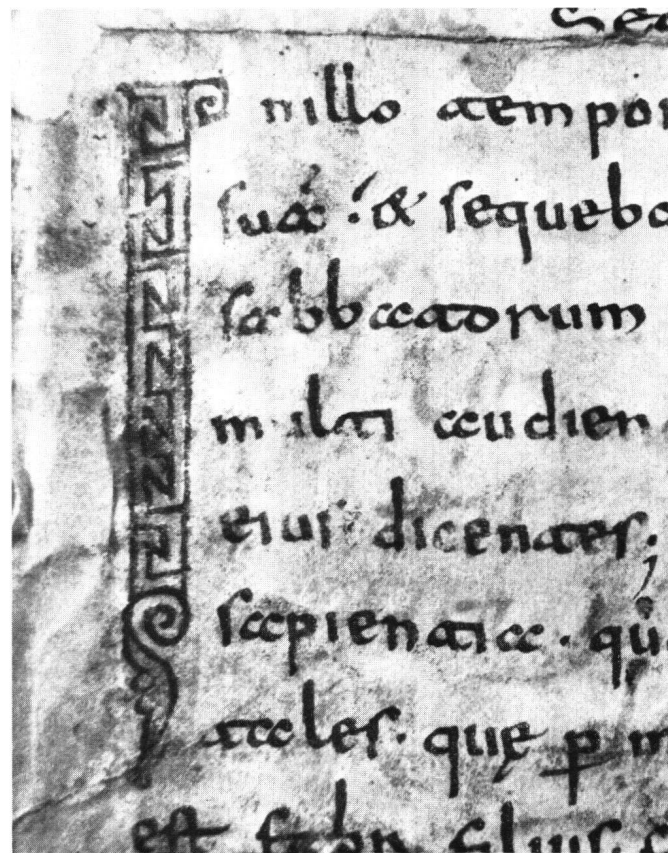 Inillo tempor
suā : & sequeba
sabbatorum
multi audien
eius dicentes;
sapientia · qu
tales · quę ꝑ m
est faber filius ·